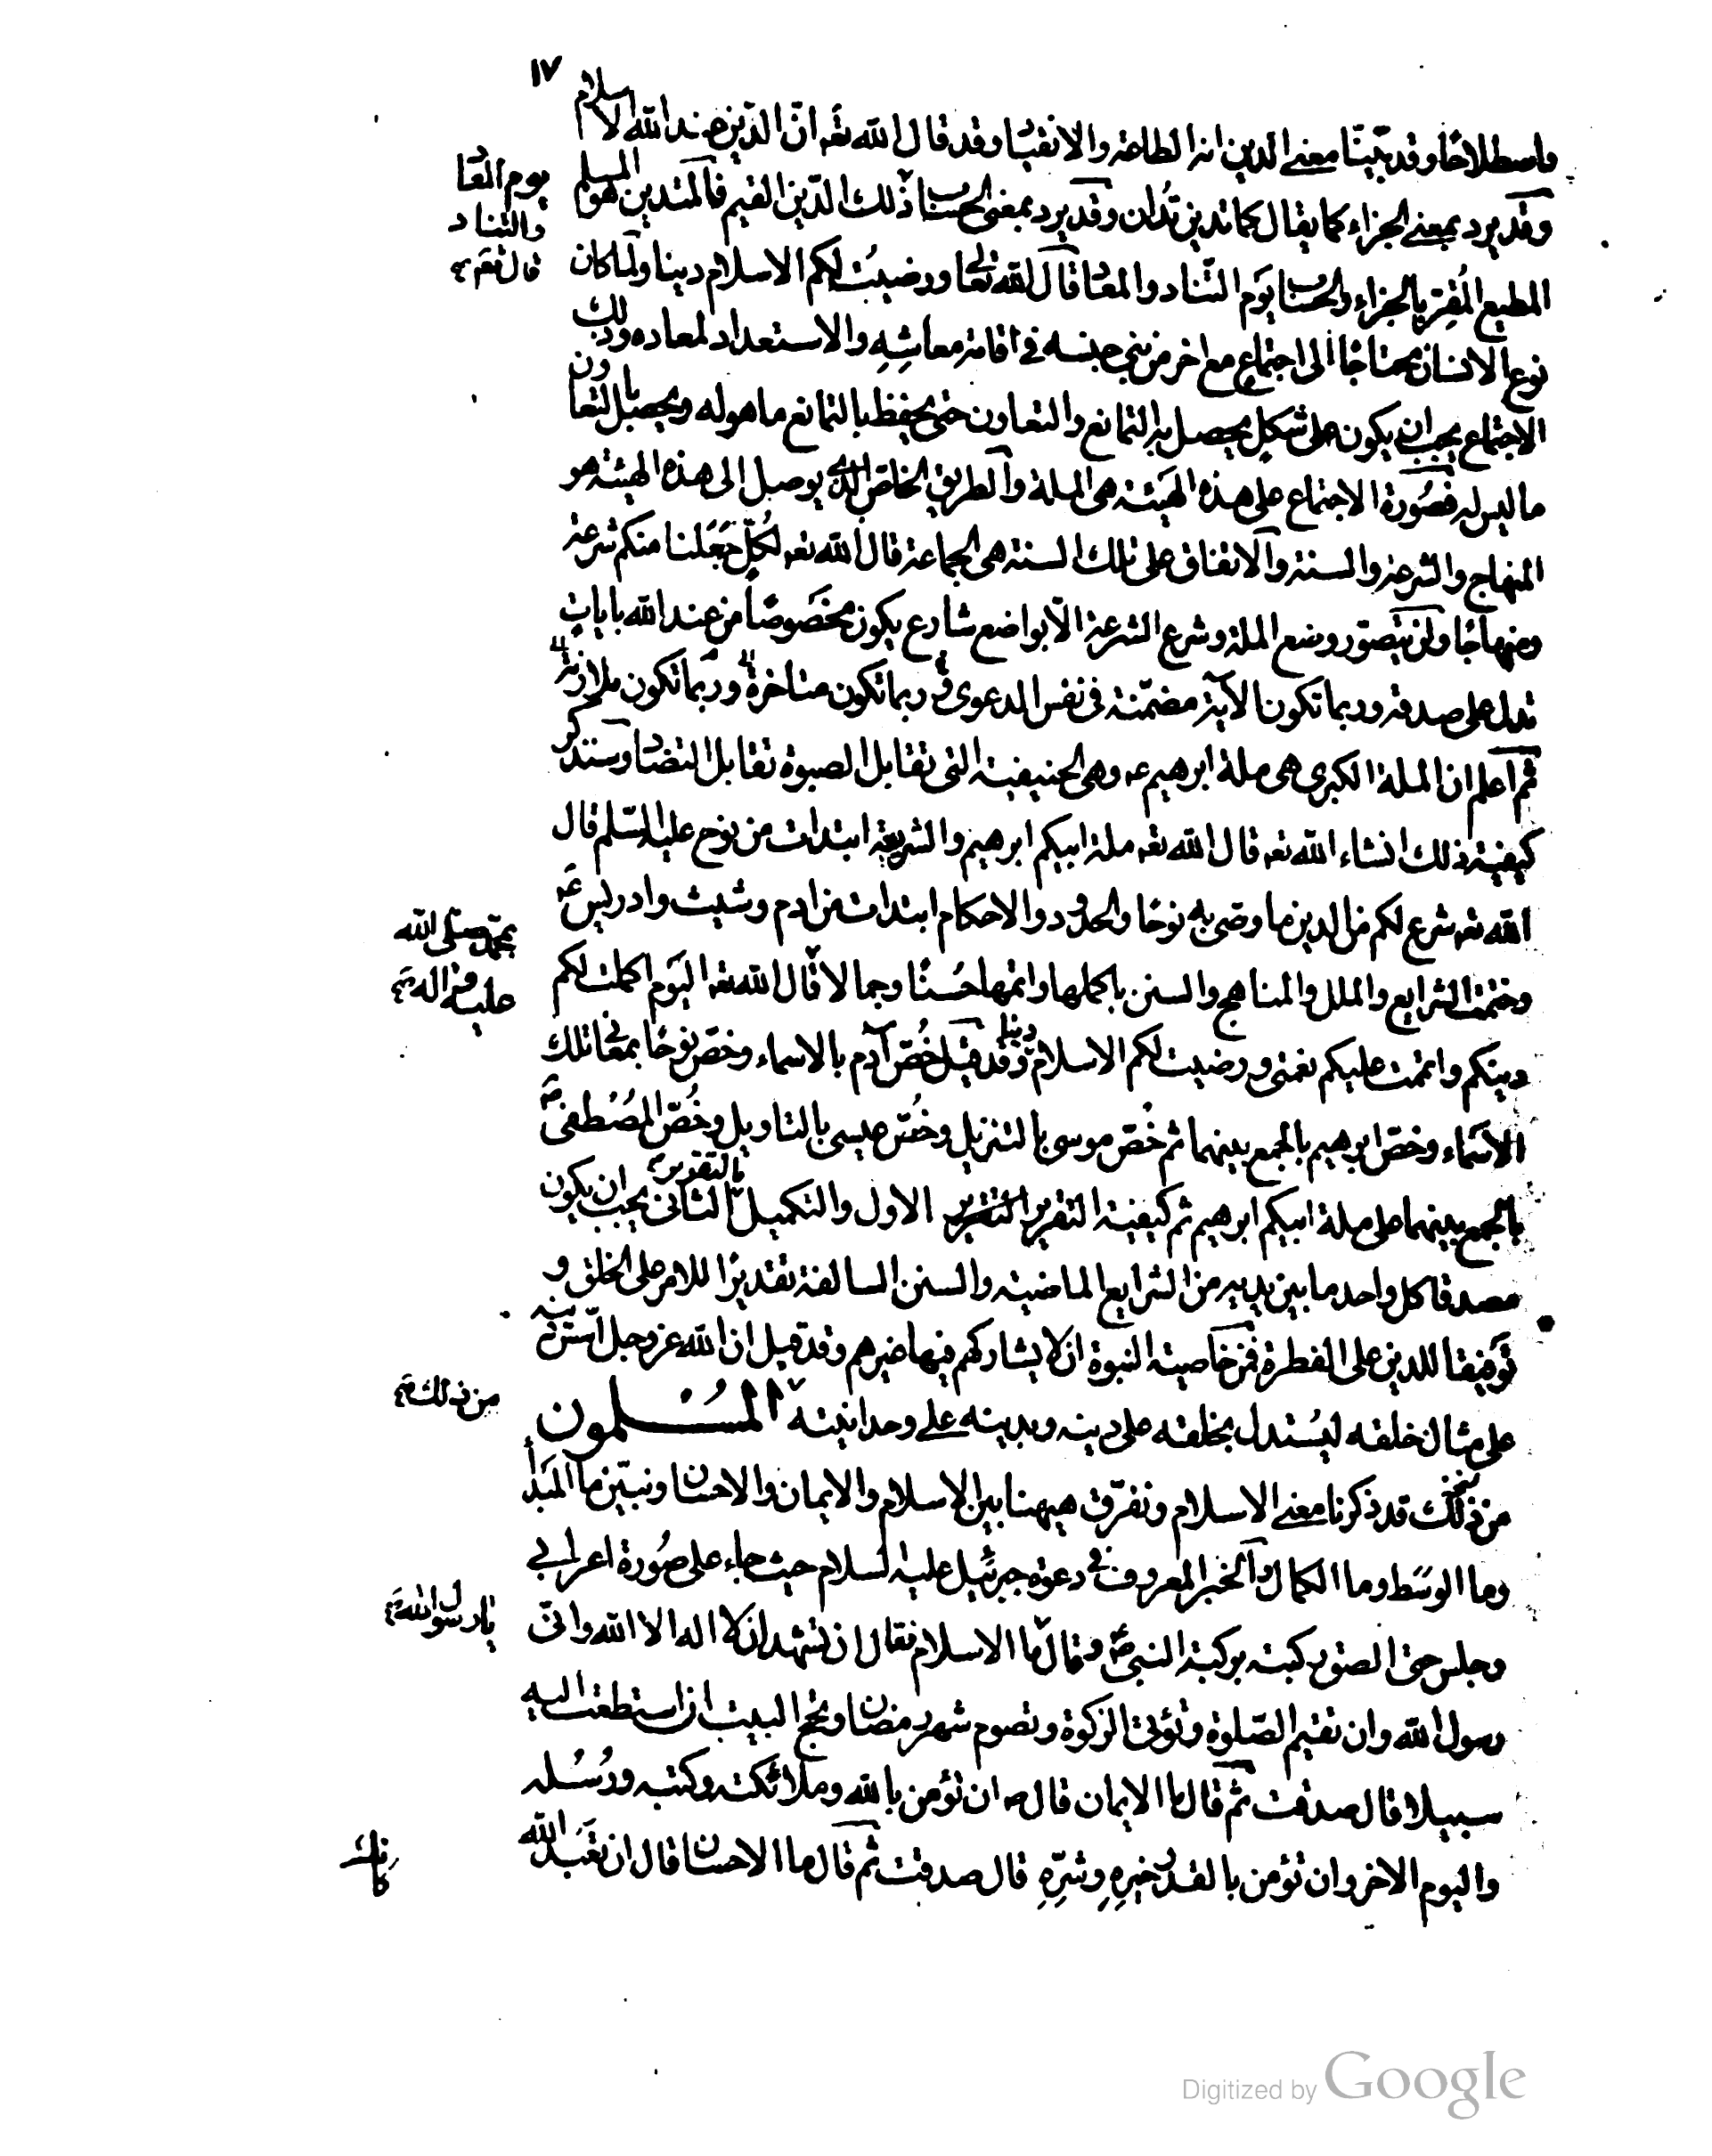 ١٧
واصطلاحًا وقد بيّنا معنى الدين انه الطاعة والانقياد وقد قال الله تعه انّ الدّين عند الله الاسلام
وقد يرد بمعنى الجزاء كما يقال كما تدين تُدان وقد يرد بمعنى الحساب ذلك الدّين القيم فالمتدين هو المسلم
المطيع المُقر بالجزاء والحساب يوم التّناد والمعاد قال الله تعالى ورضيتُ لكم الاسلام دينا ولما كان
يوم المعاد
والتناد
قال تعه
نوع الانسان محتاجًا الى اجتماع مع اخر من بني جنسه في اقامة معاشِهِ والاستعداد لمعاده وذلك
الاجتماع يجب ان يكون على شكلٍ يحصل به التمانع والتعاون حتى يحفظ بالتمانع ما هو له ويحصل بالتعاون
ما ليس له فصُورة الاجتماع على هذه الهيئة هى الملة والطريق الخاصّ الذى يوصل الى هذه الهيئة هو
المنهاج والشرعة والسنة والاتفاق على تلك السنة هى الجماعة قال الله تعه لكُلّ جَعَلنا منكم شرعة
ومنهاجًا ولن يتصوّر وضع الملة وشرع الشرعة الّا بواضع شارع يكون مخصَوصًا من عند الله بايات
تدل على صدقه وربما تكون الآية مضمّنة فى نفس الدعوى و ربما تكون متاخرة وربما تكون ملازمة
ثم اعلم ان الملة الكبرى هى ملة ابرهيم عـ وهى الحنيفية التى تقابل الصبوة تقابل التضاد وسنذكر
كيفية ذلك انشاء الله تعه قال الله تعه ملة ابيكم ابرهيم والشريعة ابتدات من نوح عليه السّلم قال
الله تعه شرع لكم من الدين ما وصّى به نوحًا والحدود والاحكام ابتدات من ادم وشيث وادريس عـ
وختمت الشرايع والملل والمناهج والسنن باكملها واتمها حُسنًا وجمالا قال الله تعه اليَوم اكملت لكم
بمحمد صلى الله
عليه واله
دينكم واتممت عليكم نعمتى ورضيت لكم الاسلام دينا وقد قيل خُصّ آدم بالاسماء وخصّ نوحًا بمعانى تلك
الاسماء وخصّ ابرهيم بالجمع بينهما ثم خُصّ موسى بالتنزيل وخُصّ عيسى بالتاويل وخُصّ المصُطفى صـ
بالجمع بينهما على ملة ابيكم ابرهيم ثم كيفية التقرير الاول والتكميل بالتقرير الثانى يجب ان يكون
مصدقا كل واحد ما بين يديه من الشرايع الماضية والسنن السالفة تقديرًا للامر على الخلق و
توفيقا للدين على الفطرة فمن خاصية النبوة ان لا يشاركهم فيها غيرهم وقد قيل ان الله عز وجل اسّس دينه
على مثال خلقه ليُستدل بخلقه على دينه وبدينه على وحدانيته المُسْلمون
من ذلك
من ذلك قد ذكرنا معنى الاسلام ونفرّق هيهنا بين الاسلام والايمان والاحسان ونبيّن ما المَبدأ
وما الوسَط وما الكمال والخبر المعروف فى دعوة جبرئيل عليه السلام حيث جاء على صُورة اعرابى
وجلس حتى الصق ركبته بركبة النبى صـ وقال ما الاسلام فقال ان تشهد ان لا اله الا الله وانّى
يا رسول الله
رسول الله وان تقيم الصّلوة وتؤتى الزكوة وتصوم شهر رمضان وتحج البيت ان استطعت اليه
سبيلا قال صدقت ثم قال ما الايمان قال صـ ان تؤمن بالله وملائكته وكتبه ورُسُله
واليوم الاخر وان تؤمن بالقدر خيرِهِ وشرّهِ قال صدقت ثم قال ما الاحسان قال ان تعَبد الله
كانك
Digitized by Google